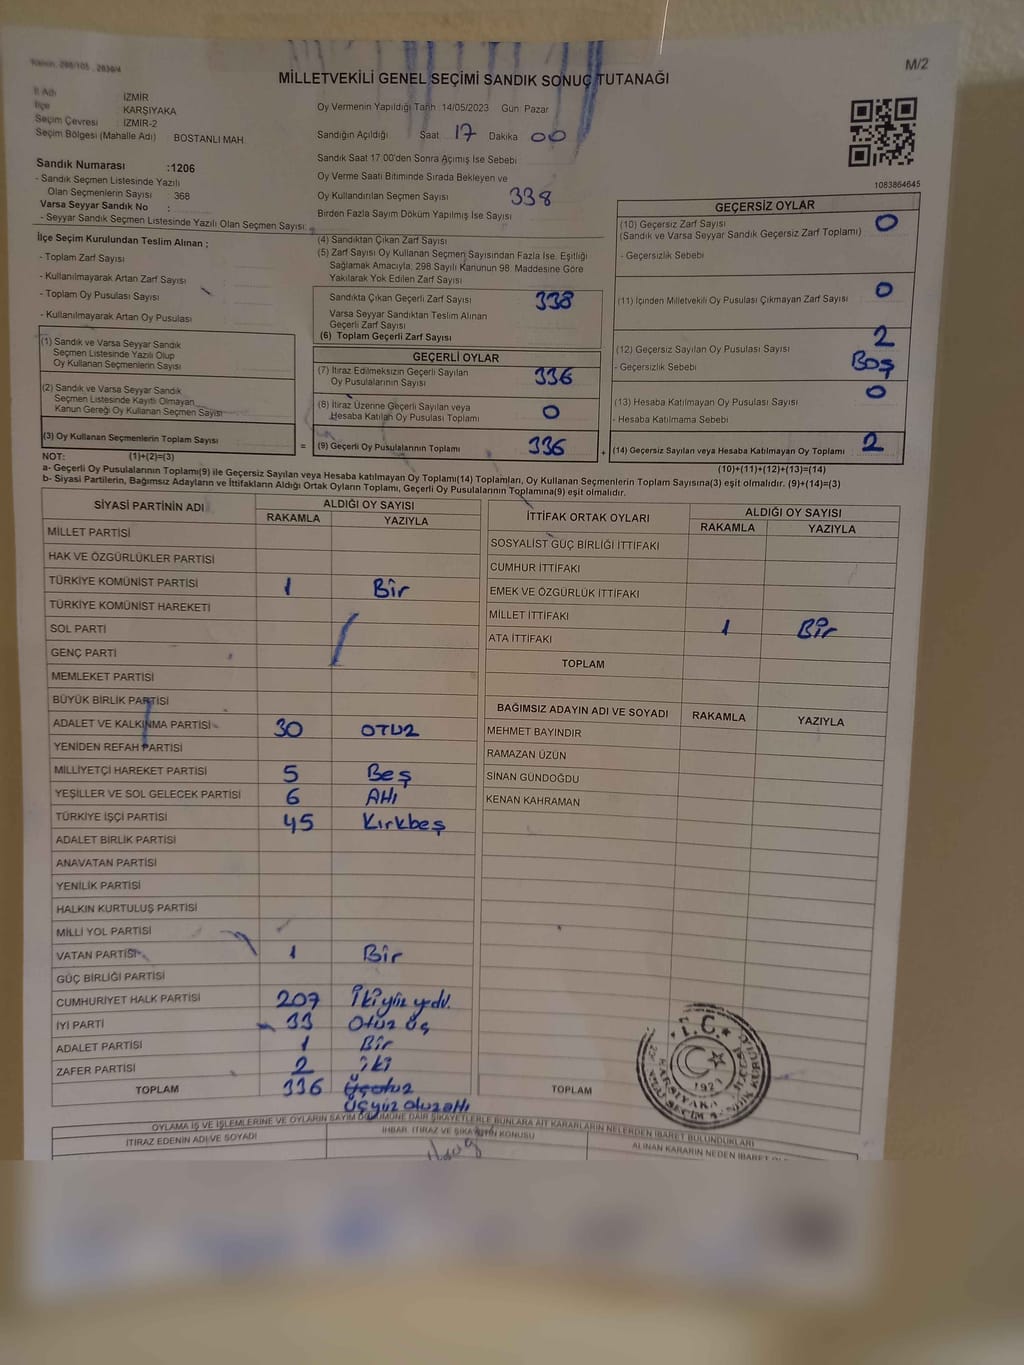 MİLLETVEKİLİ GENEL SEÇİMİ SANDIK SONUÇ TUTANAĞI
M/2
İl Adı : İZMİR
İlçe : KARŞIYAKA
Seçim Çevresi : İZMİR-2
Seçim Bölgesi (Mahalle Adı) : BOSTANLI MAH.
Sandık Numarası :1206
- Sandık Seçmen Listesinde Yazılı
Olan Seçmenlerin Sayısı : 368
Varsa Seyyar Sandık No :
- Seyyar Sandık Seçmen Listesinde Yazılı Olan Seçmen Sayısı:
Oy Vermenin Yapıldığı Tarih :14/05/2023 Gün: Pazar
Sandığın Açıldığı Saat : 17 Dakika 00
Sandık Saat 17.00'den Sonra Açılmış İse Sebebi
Oy Verme Saati Bitiminde Sırada Bekleyen ve
Oy Kullandırılan Seçmen Sayısı 338
Birden Fazla Sayım Döküm Yapılmış İse Sayısı
1083864645
İlçe Seçim Kurulundan Teslim Alınan ;
- Toplam Zarf Sayısı
- Kullanılmayarak Artan Zarf Sayısı
- Toplam Oy Pusulası Sayısı
- Kullanılmayarak Artan Oy Pusulası
(1) Sandık ve Varsa Seyyar Sandık
Seçmen Listesinde Yazılı Olup
Oy Kullanan Seçmenlerin Sayısı
(2) Sandık ve Varsa Seyyar Sandık
Seçmen Listesinde Kayıtlı Olmayan
Kanun Gereği Oy Kullanan Seçmen Sayısı
(3) Oy Kullanan Seçmenlerin Toplam Sayısı
(4) Sandıktan Çıkan Zarf Sayısı
(5) Zarf Sayısı Oy Kullanan Seçmen Sayısından Fazla İse, Eşitliği
Sağlamak Amacıyla, 298 Sayılı Kanunun 98. Maddesine Göre
Yakılarak Yok Edilen Zarf Sayısı
Sandıkta Çıkan Geçerli Zarf Sayısı 338
Varsa Seyyar Sandıktan Teslim Alınan
Geçerli Zarf Sayısı
(6) Toplam Geçerli Zarf Sayısı
GEÇERLİ OYLAR
(7) İtiraz Edilmeksizin Geçerli Sayılan
Oy Pusulalarının Sayısı 336
(8) İtiraz Üzerine Geçerli Sayılan veya
Hesaba Katılan Oy Pusulası Toplamı 0
= (9) Geçerli Oy Pusulalarının Toplamı 336
GEÇERSİZ OYLAR
(10) Geçersiz Zarf Sayısı 0
(Sandık ve Varsa Seyyar Sandık Geçersiz Zarf Toplamı)
- Geçersizlik Sebebi
(11) İçinden Milletvekili Oy Pusulası Çıkmayan Zarf Sayısı 0
(12) Geçersiz Sayılan Oy Pusulası Sayısı 2
- Geçersizlik Sebebi Boş
(13) Hesaba Katılmayan Oy Pusulası Sayısı 0
- Hesaba Katılmama Sebebi
+ (14) Geçersiz Sayılan veya Hesaba Katılmayan Oy Toplamı 2
NOT: (1)+(2)=(3) (10)+(11)+(12)+(13)=(14)
a- Geçerli Oy Pusulalarının Toplamı(9) ile Geçersiz Sayılan veya Hesaba katılmayan Oy Toplamı(14) Toplamları, Oy Kullanan Seçmenlerin Toplam Sayısına(3) eşit olmalıdır. (9)+(14)=(3)
b- Siyasi Partilerin, Bağımsız Adayların ve İttifakların Aldığı Ortak Oyların Toplamı, Geçerli Oy Pusulalarının Toplamına(9) eşit olmalıdır.
SİYASİ PARTİNİN ADI ALDIĞI OY SAYISI
RAKAMLA YAZIYLA
MİLLET PARTİSİ
HAK VE ÖZGÜRLÜKLER PARTİSİ
TÜRKİYE KOMÜNİST PARTİSİ 1 Bir
TÜRKİYE KOMÜNİST HAREKETİ
SOL PARTİ
GENÇ PARTİ
MEMLEKET PARTİSİ
BÜYÜK BİRLİK PARTİSİ
ADALET VE KALKINMA PARTİSİ 30 OTUZ
YENİDEN REFAH PARTİSİ
MİLLİYETÇİ HAREKET PARTİSİ 5 Beş
YEŞİLLER VE SOL GELECEK PARTİSİ 6 Altı
TÜRKİYE İŞÇİ PARTİSİ 45 Kırkbeş
ADALET BİRLİK PARTİSİ
ANAVATAN PARTİSİ
YENİLİK PARTİSİ
HALKIN KURTULUŞ PARTİSİ
MİLLİ YOL PARTİSİ
VATAN PARTİSİ 1 Bir
GÜÇ BİRLİĞİ PARTİSİ
CUMHURİYET HALK PARTİSİ 207 İkiyüz yedi
İYİ PARTİ 33 Otuz üç
ADALET PARTİSİ 1 Bir
ZAFER PARTİSİ 2 iki
TOPLAM 336 Üçotuz
Üçyüz otuzaltı
İTTİFAK ORTAK OYLARI ALDIĞI OY SAYISI
RAKAMLA YAZIYLA
SOSYALİST GÜÇ BİRLİĞİ İTTİFAKI
CUMHUR İTTİFAKI
EMEK VE ÖZGÜRLÜK İTTİFAKI
MİLLET İTTİFAKI 1 Bir
ATA İTTİFAKI
TOPLAM
BAĞIMSIZ ADAYIN ADI VE SOYADI RAKAMLA YAZIYLA
MEHMET BAYINDIR
RAMAZAN ÜZÜN
SİNAN GÜNDOĞDU
KENAN KAHRAMAN
TOPLAM
T.C.
KARŞIYAKA
OYLAMA İŞ VE İŞLEMLERİNE VE OYLARIN SAYIM DÖKÜMÜNE DAİR ŞİKAYETLERLE BUNLARA AİT KARARLARIN NELERDEN İBARET BULUNDUKLARI
İTİRAZ EDENİN ADI VE SOYADI
İHBAR, İTİRAZ VE ŞİKAYETİN KONUSU
ALINAN KARARIN NEDEN İBARET